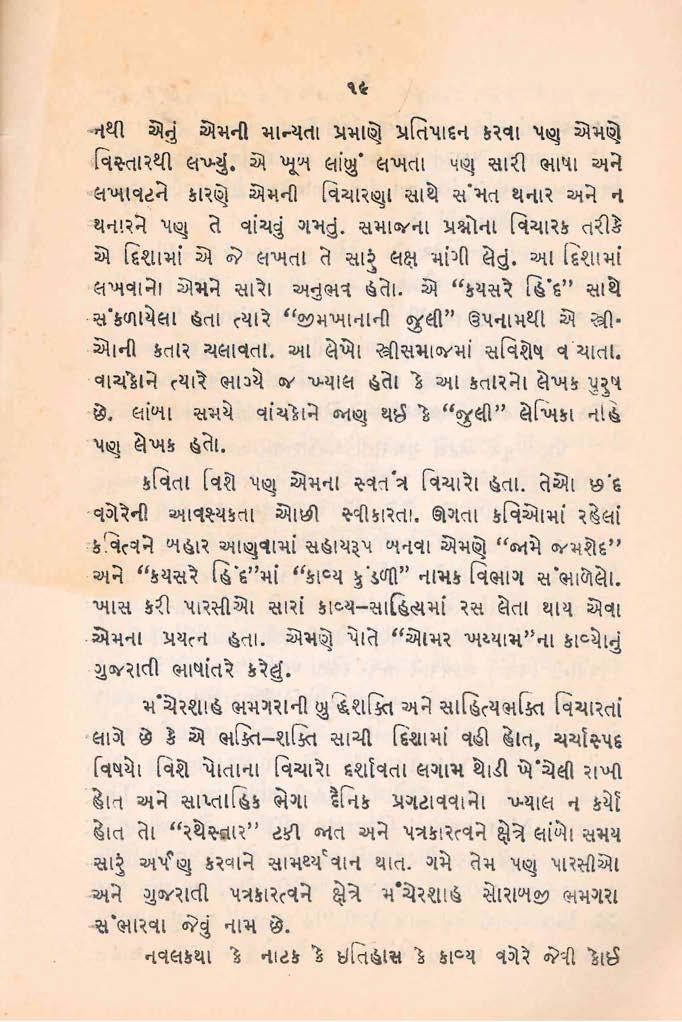 ૧૯
નથી એનું એમની માન્યતા પ્રમાણે પ્રતિપાદન કરવા પણ એમણે
વિસ્તારથી લખ્યું. એ ખૂબ લાંબું લખતા પણ સારી ભાષા અને
લખાવટને કારણે એમની વિચારણા સાથે સંમત થનાર અને ન
થનારને પણ તે વાંચવું ગમતું. સમાજના પ્રશ્નોના વિચારક તરીકે
એ દિશામાં એ જે લખતા તે સારું લક્ષ માંગી લેતું. આ દિશામાં
લખવાનો એમને સારો અનુભવ હતો. એ “કયસરે હિંદ” સાથે
સંકળાયેલા હતા ત્યારે “જીમખાનાની જુલી” ઉપનામથી એ સ્ત્રી-
ઓની કતાર ચલાવતા. આ લેખો સ્ત્રીસમાજમાં સવિશેષ વંચાતા.
વાચકોને ત્યારે ભાગ્યે જ ખ્યાલ હતો કે આ કતારનો લેખક પુરુષ
છે. લાંબા સમયે વાંચકોને જાણ થઈ કે “જુલી” લેખિકા નહિ
પણ લેખક હતો.
કવિતા વિશે પણ એમના સ્વતંત્ર વિચારો હતા. તેઓ છંદ
વગેરેની આવશ્યકતા ઓછી સ્વીકારતા. ઊગતા કવિઓમાં રહેલાં
કવિત્વને બહાર આણવામાં સહાયરૂપ બનવા એમણે “જામે જમશેદ”
અને “કયસરે હિંદ”માં “કાવ્ય કુંડળી” નામક વિભાગ સંભાળેલો.
ખાસ કરી પારસીઓ સારાં કાવ્ય–સાહિત્યમાં રસ લેતા થાય એવા
એમના પ્રયત્ન હતા. એમણે પોતે “ઓમર ખય્યામ”ના કાવ્યોનું
ગુજરાતી ભાષાંતરે કરેલું.
મંચેરશાહ ભમગરાની બુદ્ધિશક્તિ અને સાહિત્યભક્તિ વિચારતાં
લાગે છે કે એ ભક્તિ–શક્તિ સાચી દિશામાં વહી હોત, ચર્ચાસ્પદ
વિષયો વિશે પોતાના વિચારો દર્શાવતા લગામ થોડી ખેંચેલી રાખી
હોત અને સાપ્તાહિક ભેગા દૈનિક પ્રગટાવવાનો ખ્યાલ ન કર્યો
હોત તો “રથેસ્તાર” ટકી જાત અને પત્રકારત્વને ક્ષેત્રે લાંબો સમય
સારું અર્પણ કરવાને સામર્થ્યવાન થાત. ગમે તેમ પણ પારસીઓ
અને ગુજરાતી પત્રકારત્વને ક્ષેત્રે મંચેરશાહ સોરાબજી ભમગરા
સંભારવા જેવું નામ છે.
નવલકથા કે નાટક કે ઇતિહાસ કે કાવ્ય વગેરે જેવી કોઈ